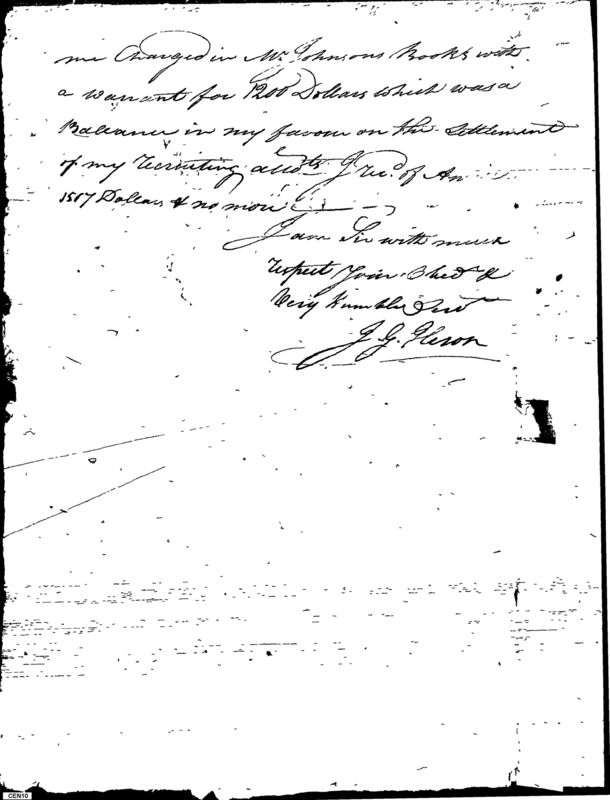 me Charged in Mr. Johnsons Books with
a warrant for 1200 Dollars which was a
Ballance in my favour on the Settlement
of my recruiting accots I recd. of
1517 Dollars & no more
I am Sir with much
respect Your Obedt. &
Very Humble Servt.
J. G.
CEN10